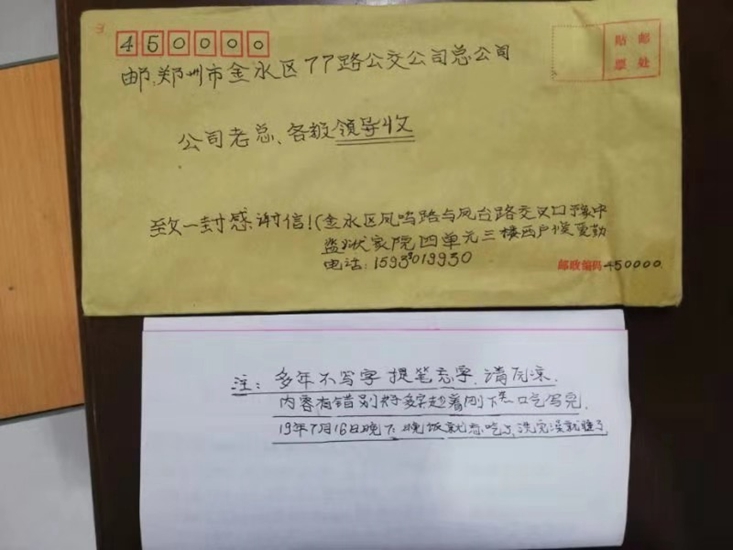 450000
贴 邮
票 处
邮:郑州市金水区77路公交公司总公司
公司老总、各级领导收
致一封感谢信!(金水区凤鸣路与凤台路交叉口豫中
监狱家院四单元三楼西户
电话:
邮政编码450000
注: 多年不写字 提笔忘字.请原谅.
内容有错别字好多字趁着刚下 口气写完.
19年7月16日晚下 晚饭就忘吃了,洗完澡就睡了